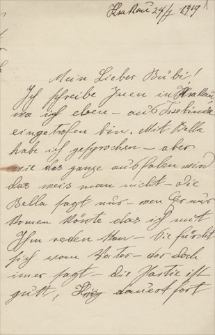 Krakau 24/I 1919
Mein Lieber Bubi!
Ich schreibe Ihnen in Krakau,
wo ich eben – aus
eingetrofen bin. Mit Bella
habe ich gesprochen – aber
wie das ganze ausfalen wird
das weis man nicht – die
Bella sagt nur – wen Er nur
komen könte das ich mit
Ihm reden kan – Sie fürcht
sich vorm Vater – der doch
imer sagt – die Partie ist
gutt, Krieg dauert fort